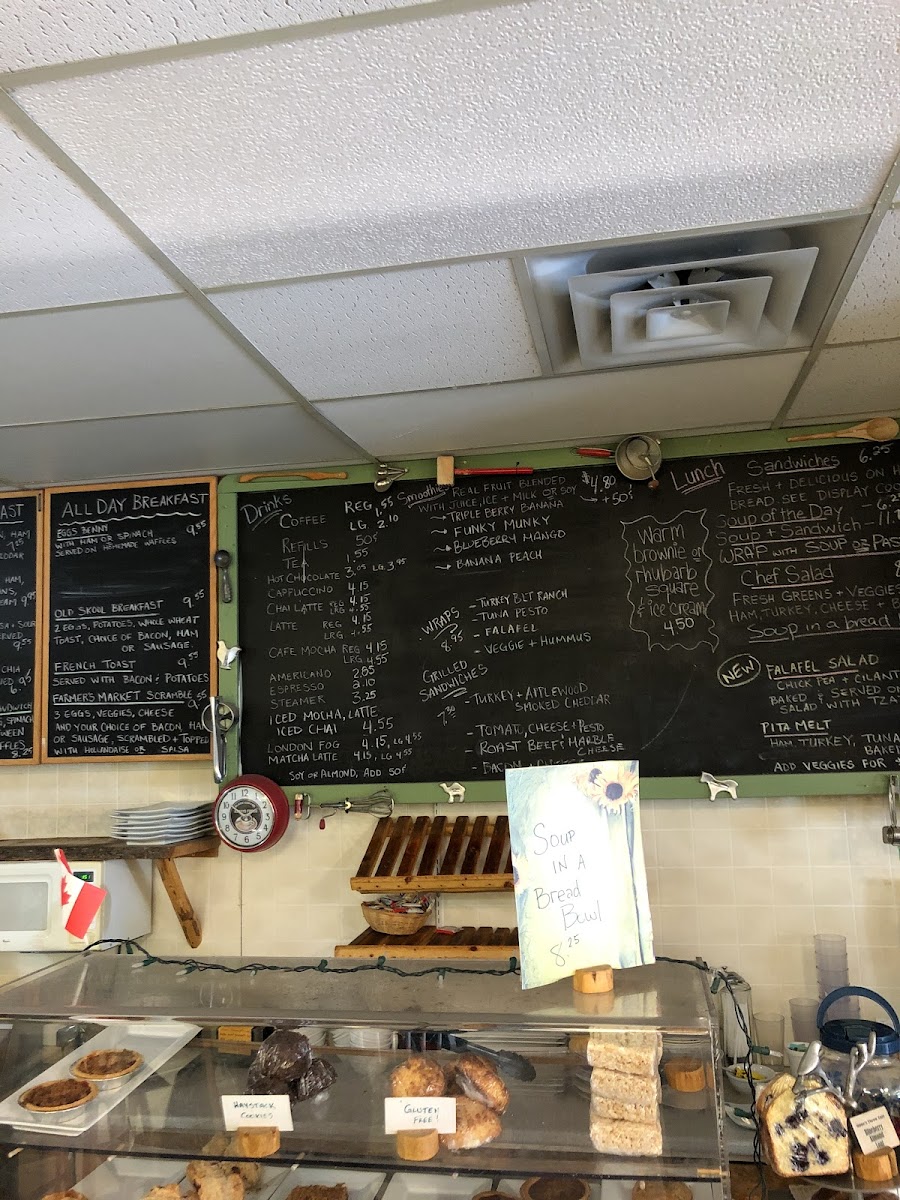 AST
HAM
ALL DAY BREAKFAST
EGGS BENNY 9.55
WITH HAM OR SPINACH
SERVED ON HOMEMADE WAFFLES
OLD SKOOL BREAKFAST 9.55
2 EGGS, POTATOES, WHOLE WHEAT
TOAST, CHOICE OF BACON, HAM
OR SAUSAGE.
FRENCH TOAST 9.55
SERVED WITH BACON & POTATOES
FARMERS MARKET SCRAMBLE 9.55
3 EGGS, VEGGIES, CHEESE
AND YOUR CHOICE OF BACON, HAM
OR SAUSAGE, SCRAMBLED + TOPPED
WITH HOLLANDAISE OR SALSA
Drinks
COFFEE REG 1.55
LG. 2.10
REFILLS 50¢
TEA 1.55
HOT CHOCOLATE 3.05 LG. 3.95
CAPPUCCINO 4.15
CHAI LATTE REG 4.15
LG 4.55
LATTE REG 4.15
LRG 4.55
CAFE MOCHA REG 4.15
LRG 4.55
AMERICANO 2.85
ESPRESSO 2.10
STEAMER 3.25
ICED MOCHA, LATTE,
ICED CHAI 4.55
LONDON FOG 4.15, LG 4.55
MATCHA LATTE 4.15, LG 4.55
SOY OR ALMOND, ADD 50¢
Smoothies REAL FRUIT BLENDED $4.80
WITH JUICE, ICE + MILK OR SOY +50¢
→ TRIPLE BERRY BANANA
→ FUNKY MUNKY
→ BLUEBERRY MANGO
→ BANANA PEACH
WRAPS
8.95
- TURKEY BLT RANCH
- TUNA PESTO
- FALAFEL
- VEGGIE + HUMMUS
GRILLED
SANDWICHES
- TURKEY + APPLEWOOD
SMOKED CHEDDAR
- TOMATO, CHEESE + PESTO
- ROAST BEEF & MARBLE
CHEESE
- BACON
Warm
brownie or
rhubarb
square
& ice cream
4.50
Lunch
Sandwiches 6.25
FRESH + DELICIOUS ON H
BREAD. SEE DISPLAY COO
Soup of the Day - 6.2
Soup + Sandwich - 11.
WRAP WITH SOUP OR PAS
Chef Salad 8
FRESH GREENS + VEGGIES
HAM, TURKEY, CHEESE +
Soup in a bread
NEW FALAFEL SALAD
CHICK PEA + CILANT
BAKED & SERVED O
SALAD WITH TZA
PITA MELT
HAM, TURKEY, TUNA
BAKE
ADD VEGGIES FOR
SOUP
IN A
Bread
Bowl
8.25
HAYSTACK
COOKIES
GLUTEN
FREE!
Blueberry